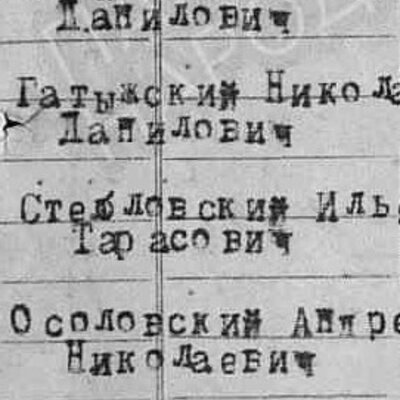 Данилович
Гатыжский Никола
Данилович
Стебловский Иль
Тарасович
Осоловский Андре
Николаевич